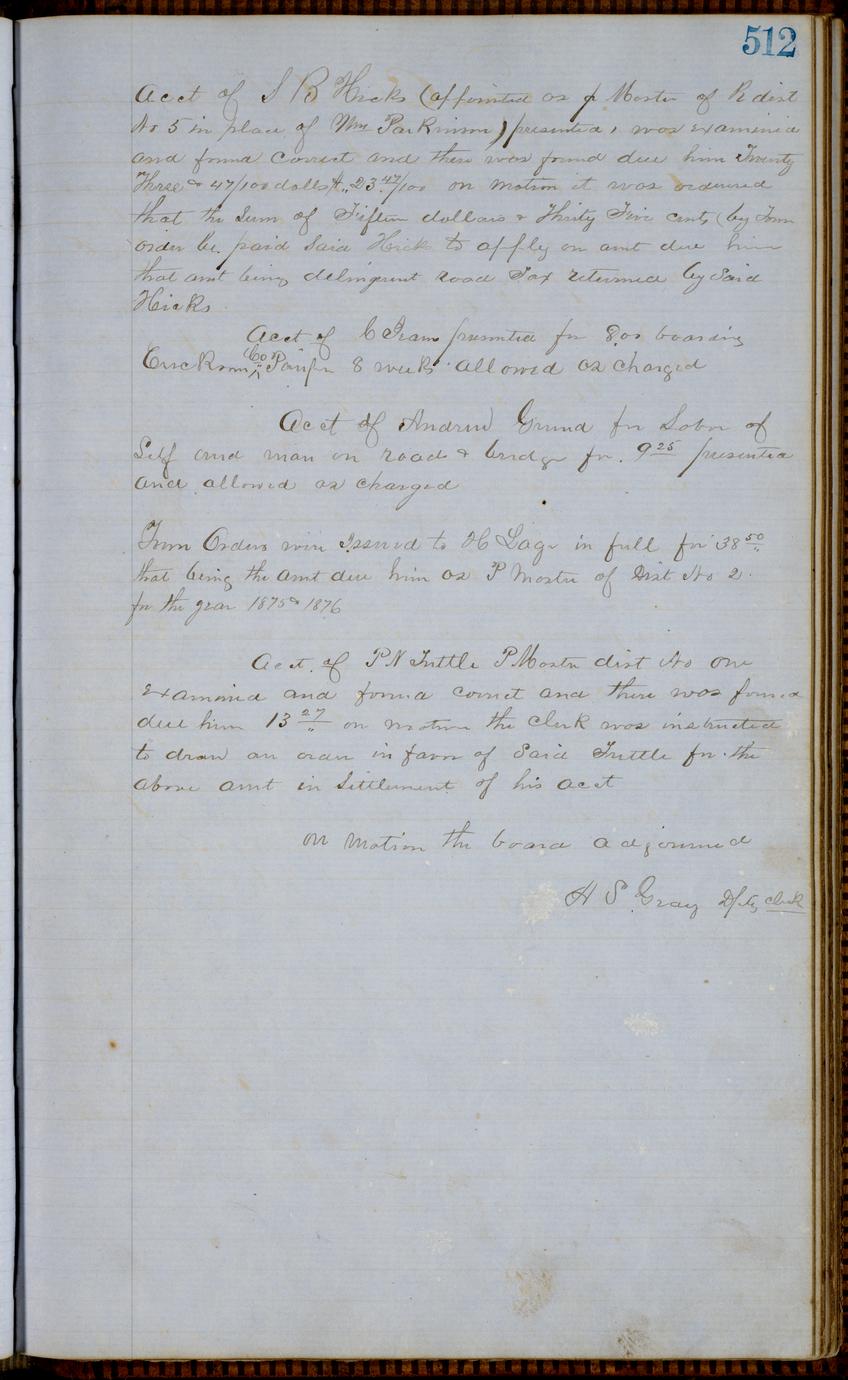 512
Acct of S B Hicks (appointed as p Master of R dist
No 5 in place of Wm Parkinson) presented, was examined
and found correct and there was found due him Twenty
Three & 47/100 dolls $23 47/100 on motion it was ordered
that the Sum of Fifteen dollars & Thirty Five cents (by Town
order be paid Said Hicks to apply on amt due him
that amt being delinquent road Tax returned by Said
Hicks
Acct of C presented for 8.00 boarding
Erickson Co Pauper 8 weeks allowed as charged
Acct of Andrew Grund for Labor of
Self and man on road & bridge for 9 25 presented
and allowed as charged
Town Orders were Issued to H Lage in full for 38 50
that being the amt due him as P Master of Dist No 2
for the year 1875 & 1876
Acct. of P N Tuttle P Master dist No one
Examined and found correct and there was found
due him 13 27 on motion the Clerk was instructed
to draw an order in favor of Said Tuttle for the
above amt in Settlement of his acct
On Motion the board adjourned
H S Gray Dpty Clerk